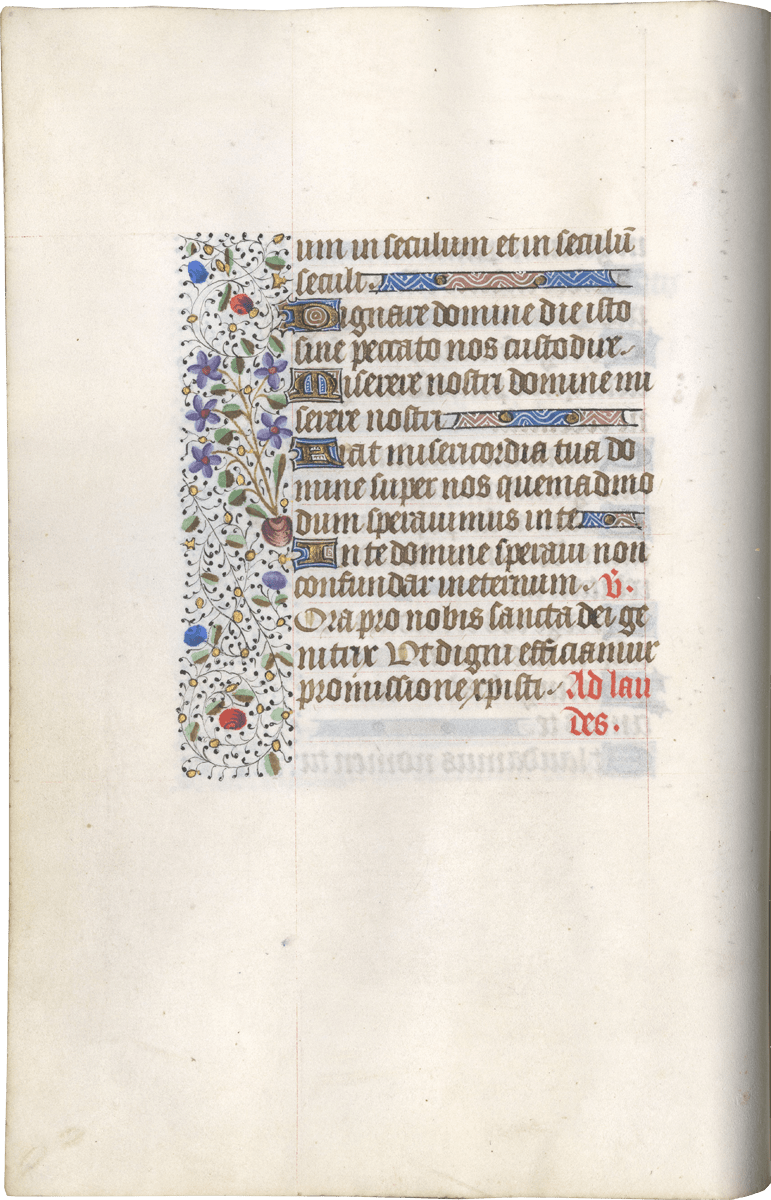 um in seculum et in seculū
seculi.
Dignare domine die isto
sine peccato nos custodire.
Miserere nostri domine mi
serere nostri
Fiat misericordia tua do
mine super nos quemadmo
dum sperauimus in te
In te domine speraui non
confundar in eternum. v̄.
Ora pro nobis sancta dei ge
nitrix Vt digni efficiamur
promissione xpisti. Ad lau
des.